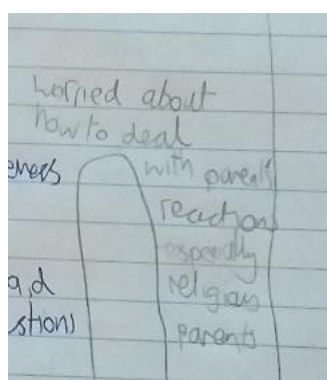 worried about
how to deal
with parents
reactions
especially
religious
parents